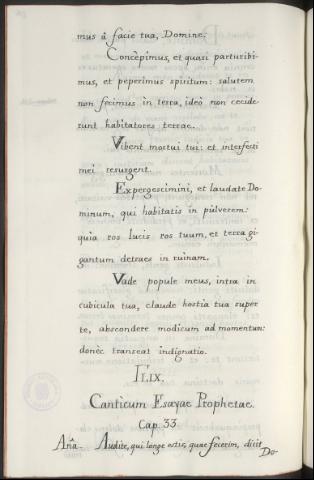 mus à facie tua, Domine.
Concèpimus, et quasi parturibi-
mus, et peperimus spiritum: salutem
non fecimus in terra, ideò non cecide-
runt habitatores terrae.
Vibent mortui tui: et interfecti
mei resurgent.
Expergescimini, et laudate Do-
minum, qui habitatis in pùlverem:
quia ros lucis ros tuum, et terra gi-
gantum detraes in ruinam.
Vade popule meus, intra in
cubicula tua, claude hostia tua super
te, abscondere modicum ad momentum:
donèc transeat indignatio.
Canticum Esayae Prophetae.
Cap. 33.
Aña. Audite, qui longe estis, quae fecerim, dicit
Do-